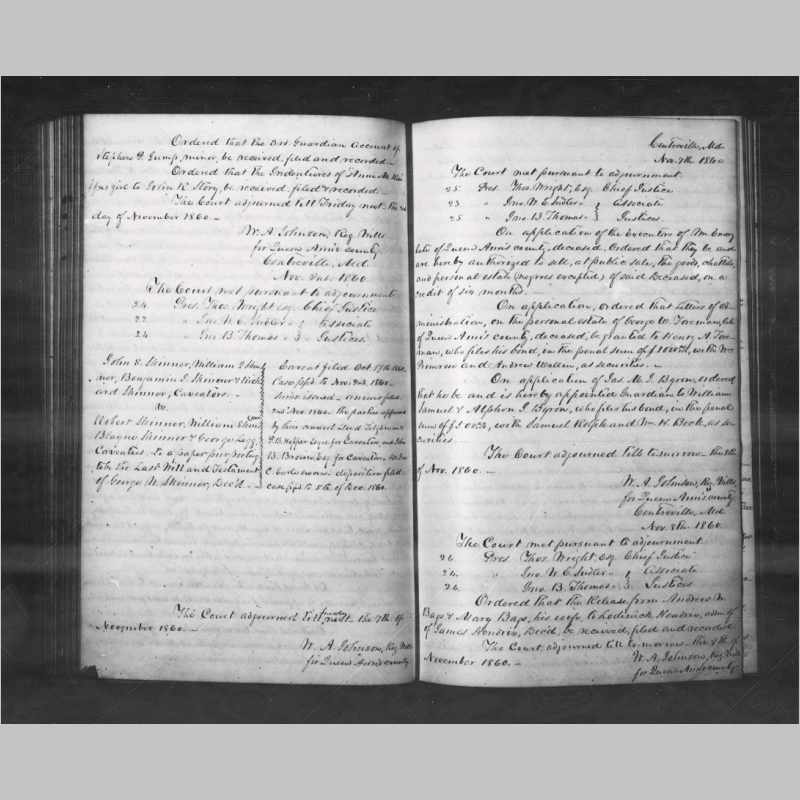 Ordered that the Guardian Account of
Stephens D. Gump, minor, be received, filed and recorded.
Ordered that the Indentures of Anne M.
girl to John R. Story, be received, filed & recorded.
The Court adjourned till Friday next, the
day of November 1860.
W. A. Johnson, Reg. Wills
for Queen Ann's county.
Centreville, Md.
Nov. 2nd 1860
The Court met pursuant to adjournment
24. Pres. Thos. Wright, Esq. Chief Justice
22. " Jno. W. E. Sudler } Associate
24 " Jno. B. Thomas } Justices.
John S. Skinner, William
Benjamin Skinner &
Skinner, Caveators.
vs.
Skinner, William
Blayne Skinner & George
Caveatees. To a paper purporting
to be the Last Will and Testament
of George W. Skinner, Dec'd.
Caveat filed Oct. 17th 1860
Case ppd. to Nov. 2nd. 1860.
issued. answer filed
2nd Nov. 1860. the parties appeared
by their counsel
Esqr. for Caveators, and John
B. Brown, Esq. for Caveatees.
deposition filed
case ppd. to 8th of Dec. 1860.
The Court adjourned till friday next. the 7th of
November 1860.
W. A. Johnson, Reg. Wills
for Queen Ann's county
Centreville, Md.
Nov. 7th 1860
The Court met pursuant to adjournment.
25. Pres. Thos. Wright, Esq. Chief Justice
23. " Jno. W. E. Sudler } Associate
25 " Jno. B. Thomas } Justices.
On application of the Executors of Wm. Emory
late of Queen Ann's county, deceased, Ordered that they be and
are hereby authorized to sell, at public sale, the goods, chattels,
and personal estate (negroes excepted) of said Deceased, on a
credit of six months.
On application, ordered that Letters of Ad-
ministration, on the personal estate of George W. Foreman, late
of Queen Ann's county, deceased, be granted to Henry A. Fore-
man, who files his bond, in the penal sum of $1000, with Wm.
and Andrew Wallen, as securities.
On application of Jas. M. J. Byron, ordered
that he be and is hereby appointed Guardian to William
Samuel & Alphon J. Byron, who files his bond, in the penal
sum of $ with Samuel Rolph and Wm. H. as se-
curities.
The Court adjourned till tomorrow, the 8th
of Nov. 1860.
W. A. Johnson, Reg. Wills
for Queen Ann's county
Centreville, Md.
Nov. 8th. 1860
The Court met pursuant to adjournment.
26. Pres. Thos. Wright, Esq. Chief Justice
24. " Jno. W. E. Sudler } Associate
26. " Jno. B. Thomas } Justices
Ordered that the Release from Andrew
& Mary his wife, to Hendrix, adm. of
of James Hendrix, Dec'd, be received, filed and recorded.
The Court adjourned till tomorrow the 9th of
November 1860.
W. A. Johnson, Reg. Wills
for Queen Ann's county